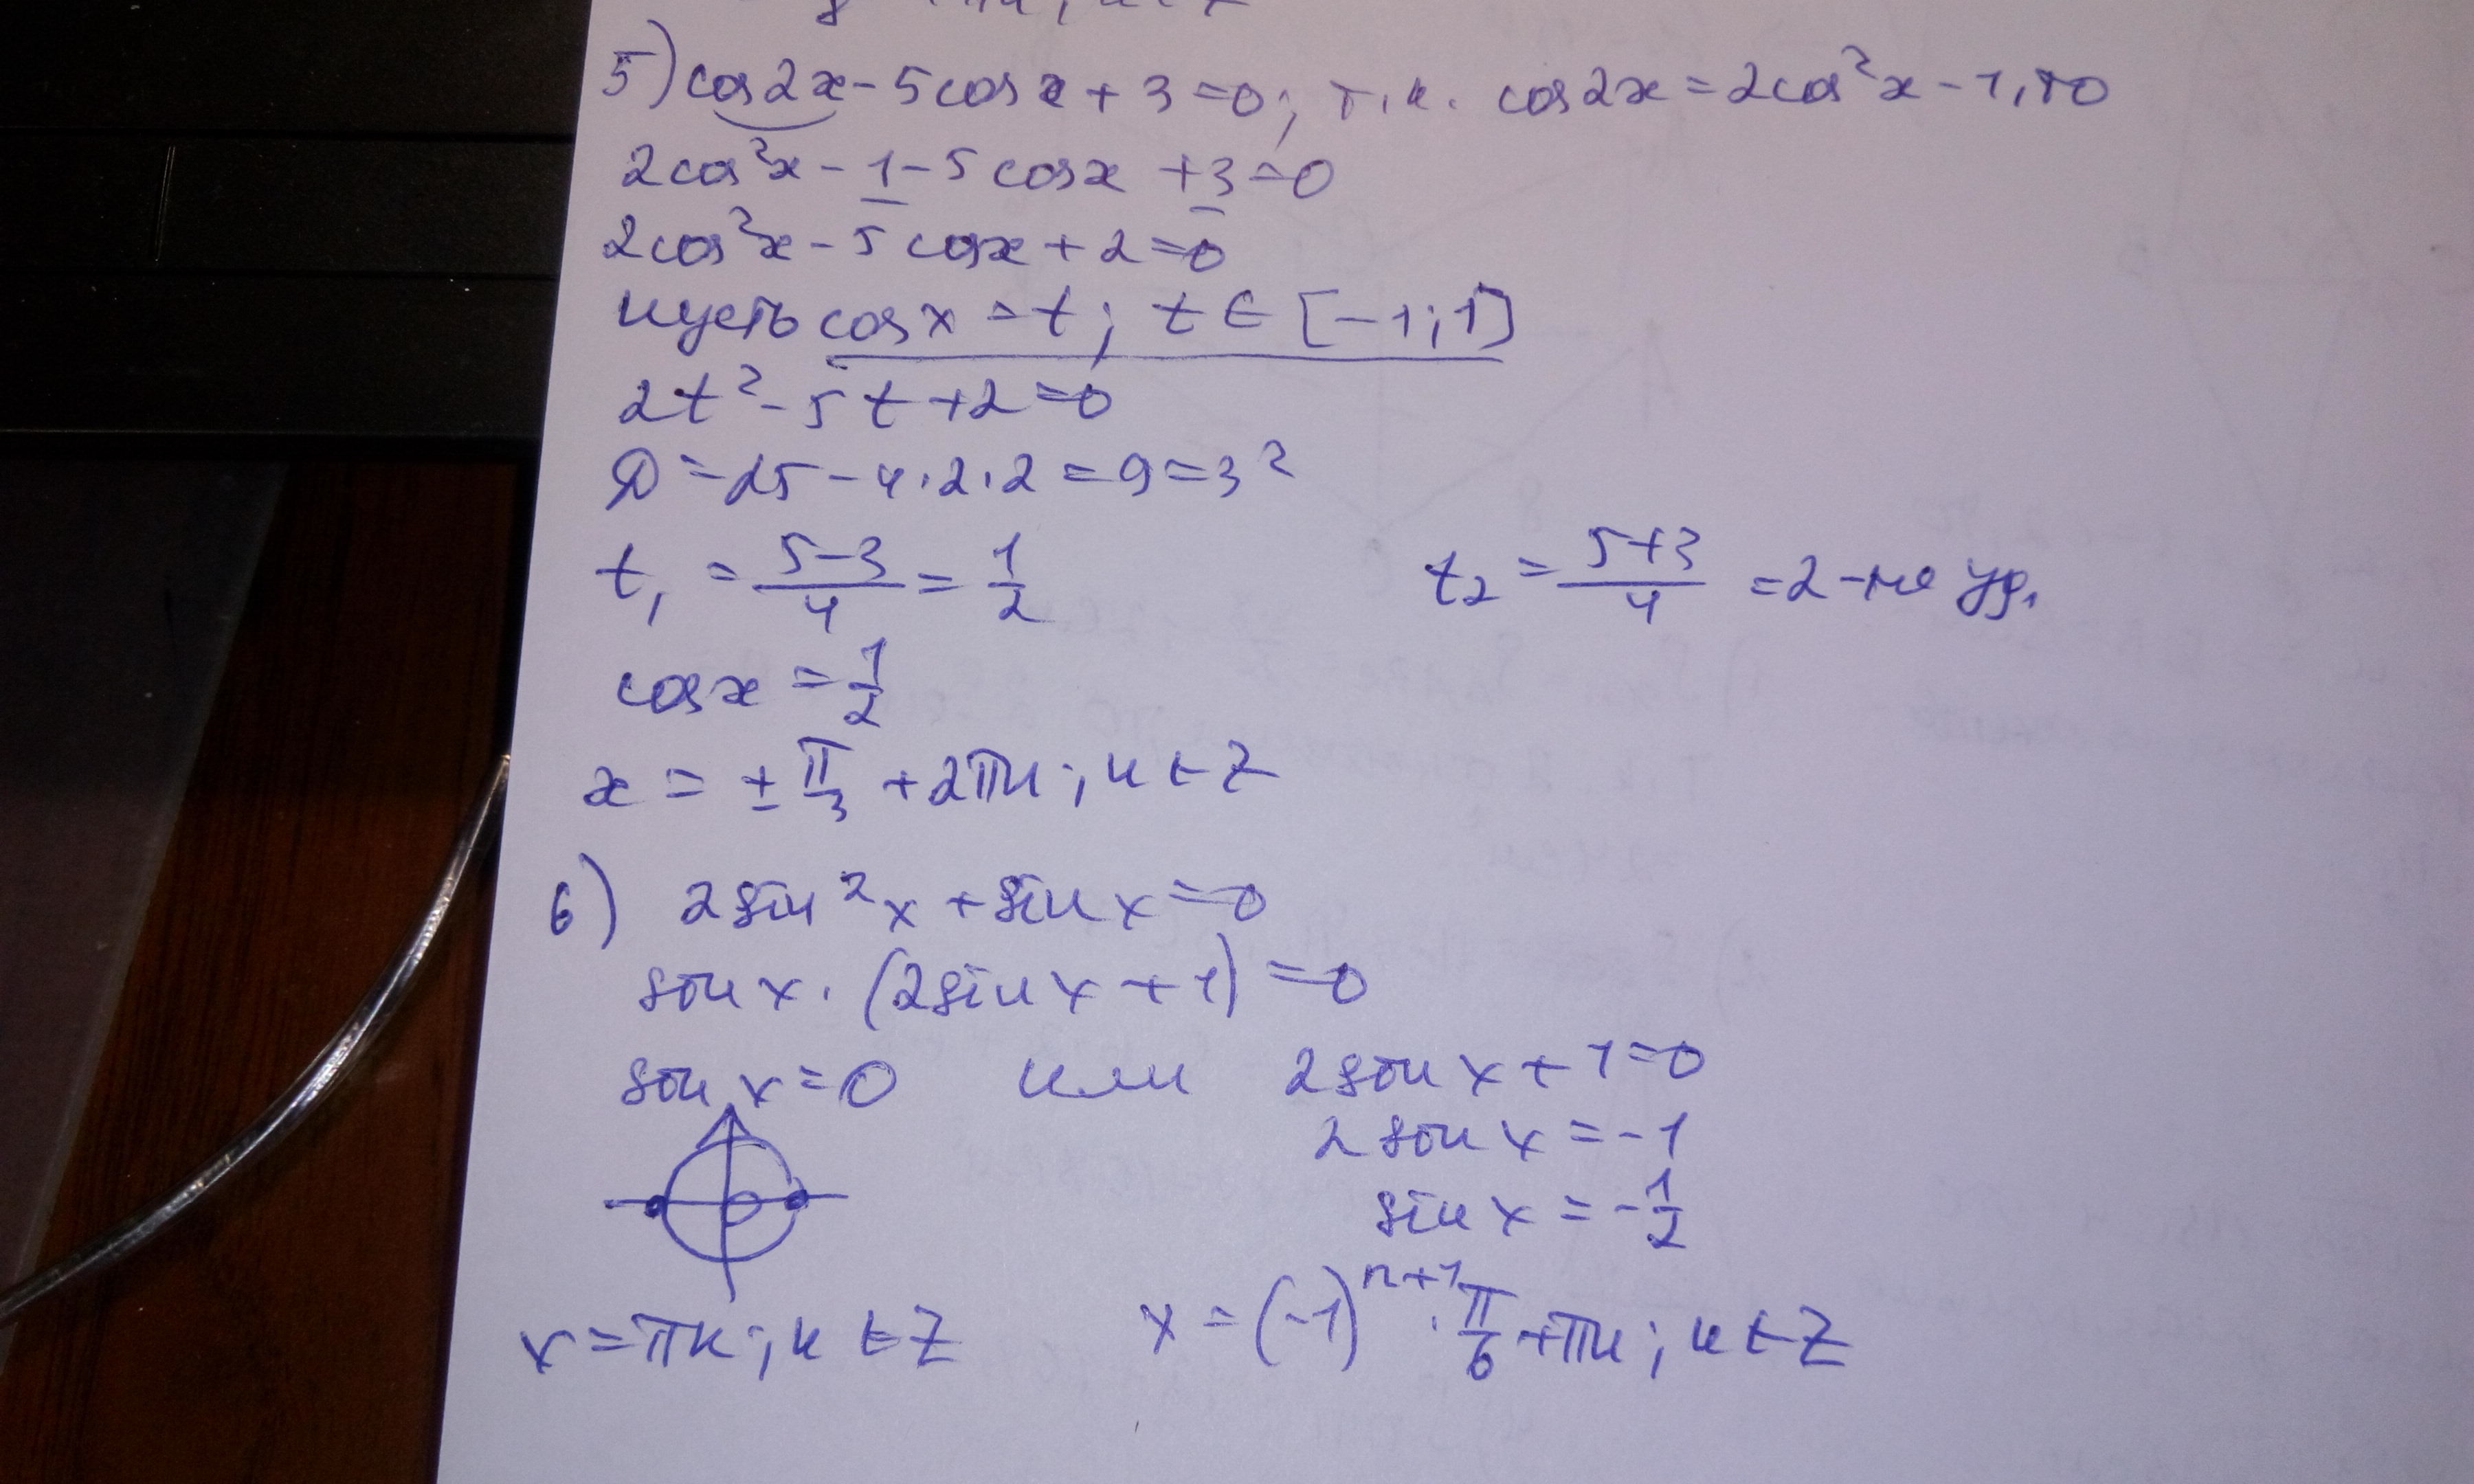 5) cos2x - 5cosx + 3 = 0; т.к. cos2x = 2cos²x - 1, то
2cos²x - 1 - 5cosx + 3 = 0
2cos²x - 5cosx + 2 = 0
пусть cosx = t; t ∈ [-1;1]
2t² - 5t + 2 = 0
D = 25 - 4·2·2 = 9 = 3²
t₁ = (5-3)/4 = 1/2 t₂ = (5+3)/4 = 2 - не уд.
cosx = 1/2
x = ± π/3 + 2πn; n ∈ Z
6) 2sin²x + sinx = 0
sinx · (2sinx + 1) = 0
sinx = 0 или 2sinx + 1 = 0
2sinx = -1
sinx = -1/2
x = πn; n ∈ Z x = (-1)ⁿ⁺¹ · π/6 + πn; n ∈ Z